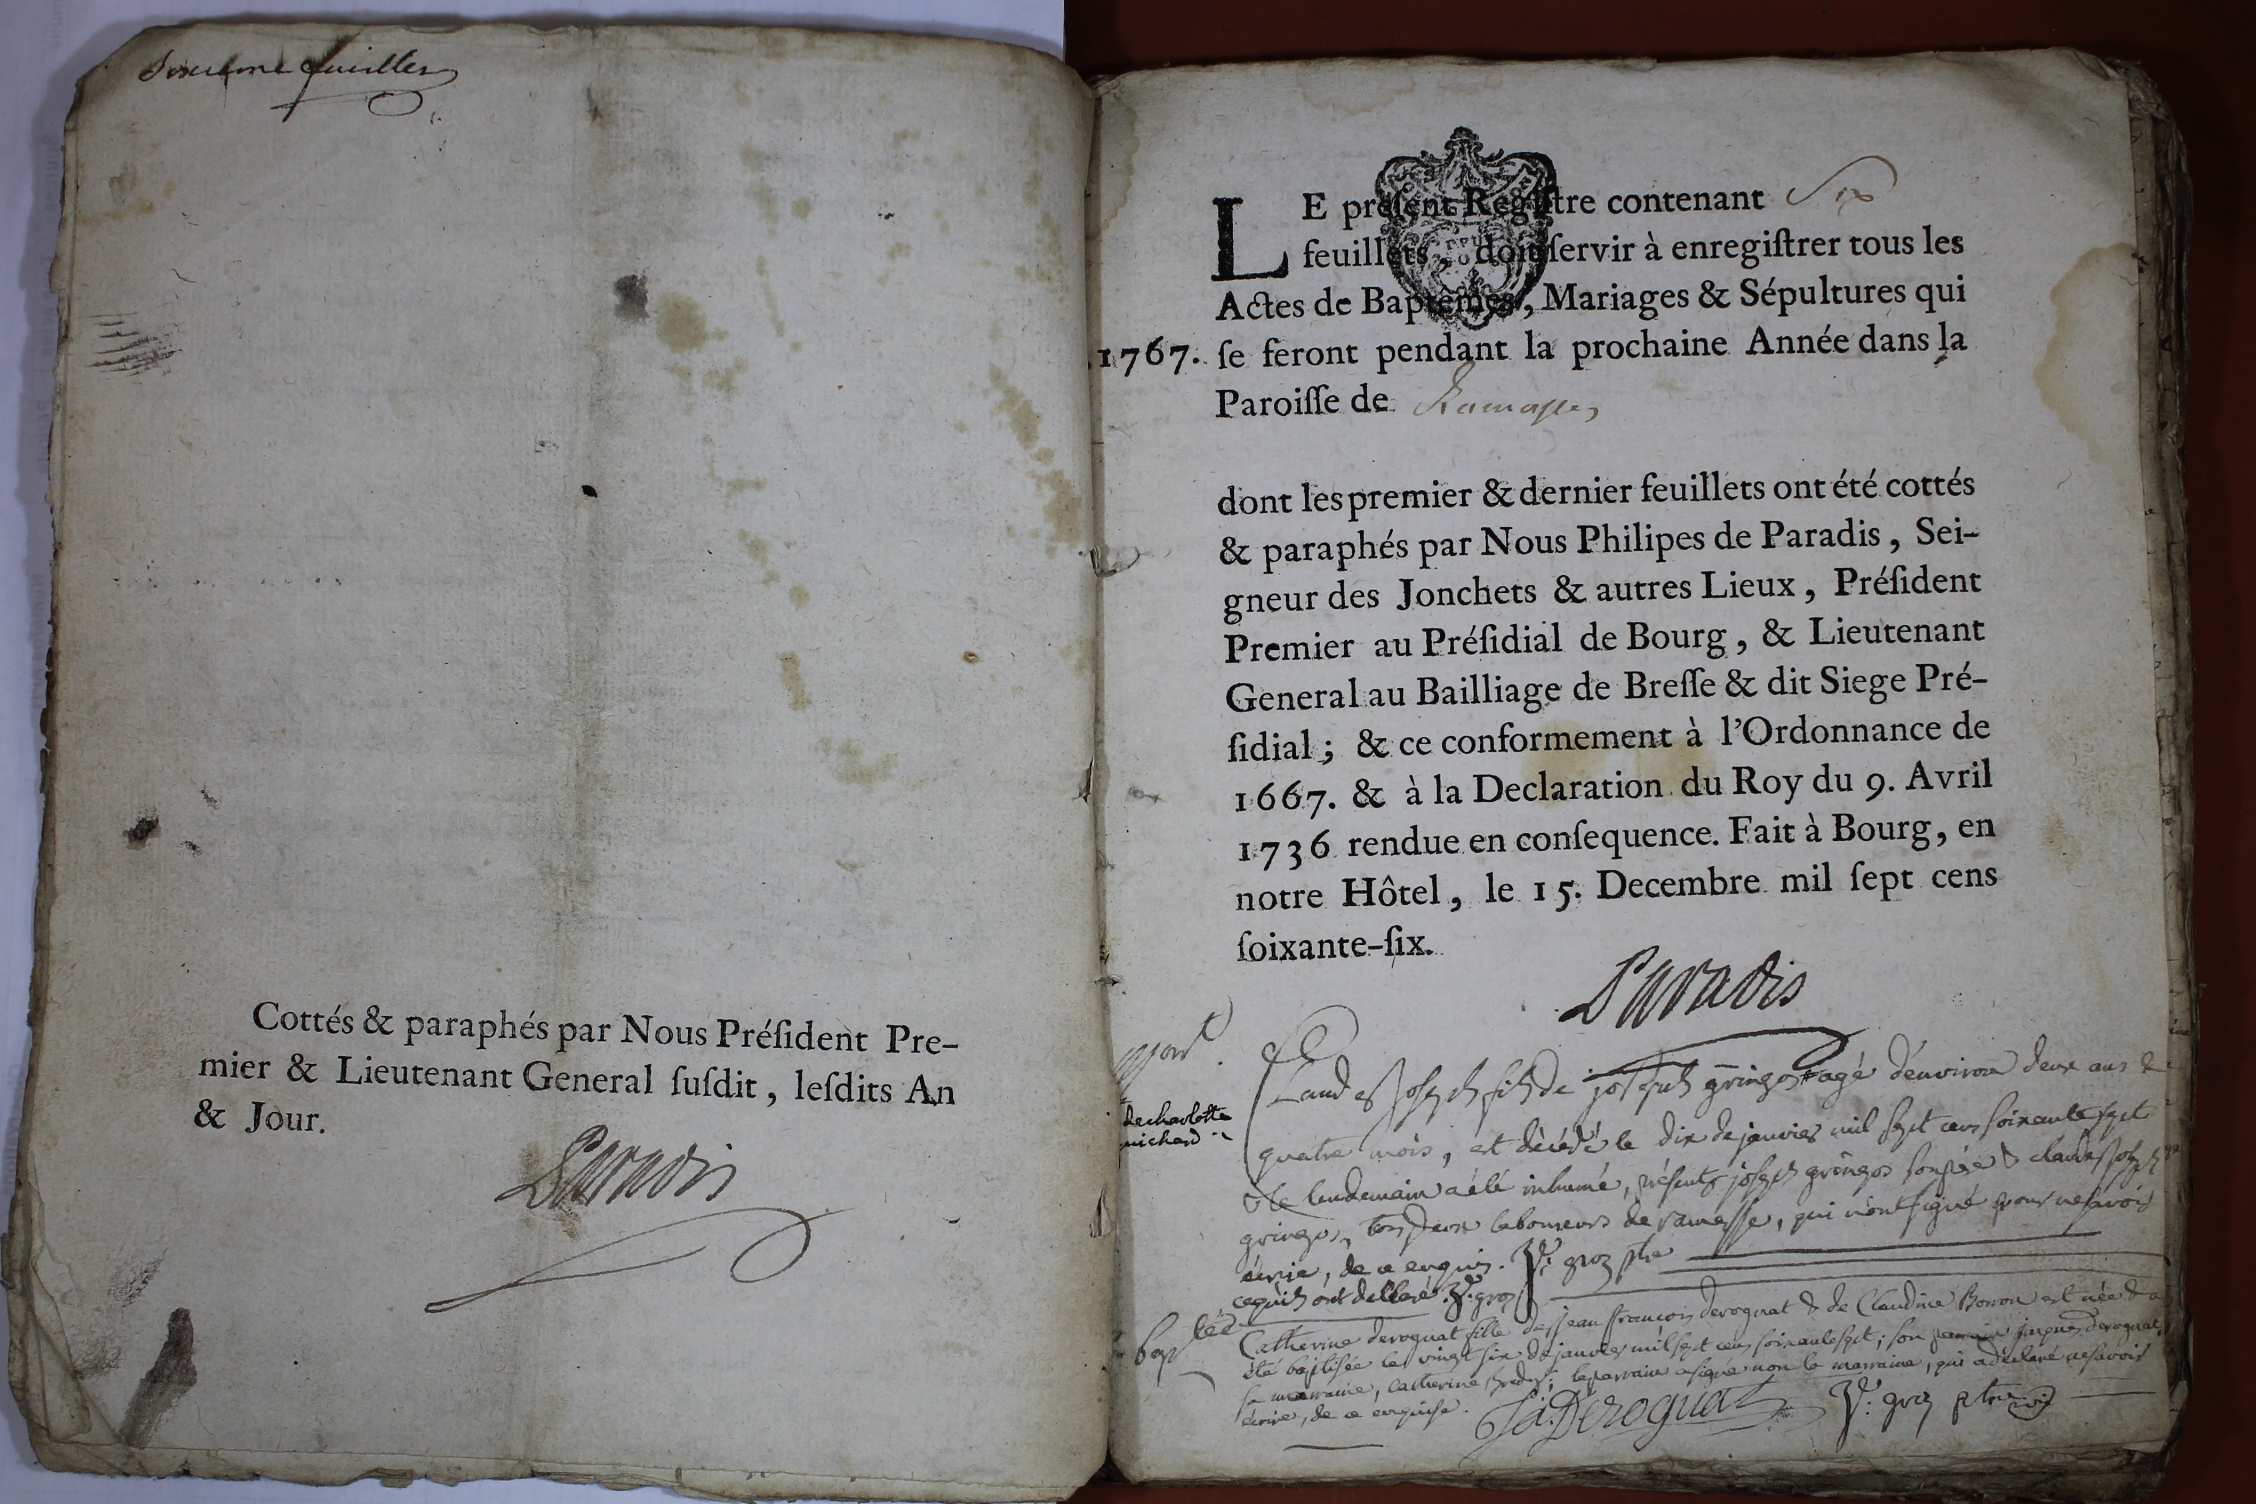 feuillet
Cottés & paraphés par Nous Préſident Pre-
mier & Lieutenant General ſuſdit, leſdits An
& Jour.
Paradis
LE préſent Regiſtre contenant Six
feuillets, doit ſervir à enregiſtrer tous les
Actes de Baptêmes, Mariages & Sépultures qui
1767. ſe feront pendant la prochaine Année dans la
Paroiſſe de Ramasse
dont les premier & dernier feuillets ont été cottés
& paraphés par Nous Philipes de Paradis, Sei-
gneur des Jonchets & autres Lieux, Préſident
Premier au Préſidial de Bourg, & Lieutenant
General au Bailliage de Breſſe & dit Siege Pré-
ſidial; & ce conformement à l'Ordonnance de
1667. & à la Declaration du Roy du 9. Avril
1736 rendue en conſequence. Fait à Bourg, en
notre Hôtel, le 15. Decembre mil ſept cens
ſoixante-ſix.
Paradis
mort
de charlotte
michard
Claude Joseph fils de joseph gringoz agé d'environ deux ans &
quatre mois, est décédé le dix de janvier mil sept cens soixante sept
& le lendemain a été inhumé, présents joseph gringoz son père & claude joseph
gringoz, tous deux laboureurs de ramasse, qui n'ont signé pour ne savoir
écrire, de ce enquis. groz ptre
ce qu'ils ont déclaré. groz
bapt
Catherine derognat fille de jean françois derognat & de Claudine Bonon est née & a
été baptisée le vingt six de janvier mil sept cens soixante sept; son parrain jacques derognat,
sa marraine, catherine; le parrain a signé non la marraine, qui a déclaré ne savoir
écrire, de ce enquise. Derognat groz ptre